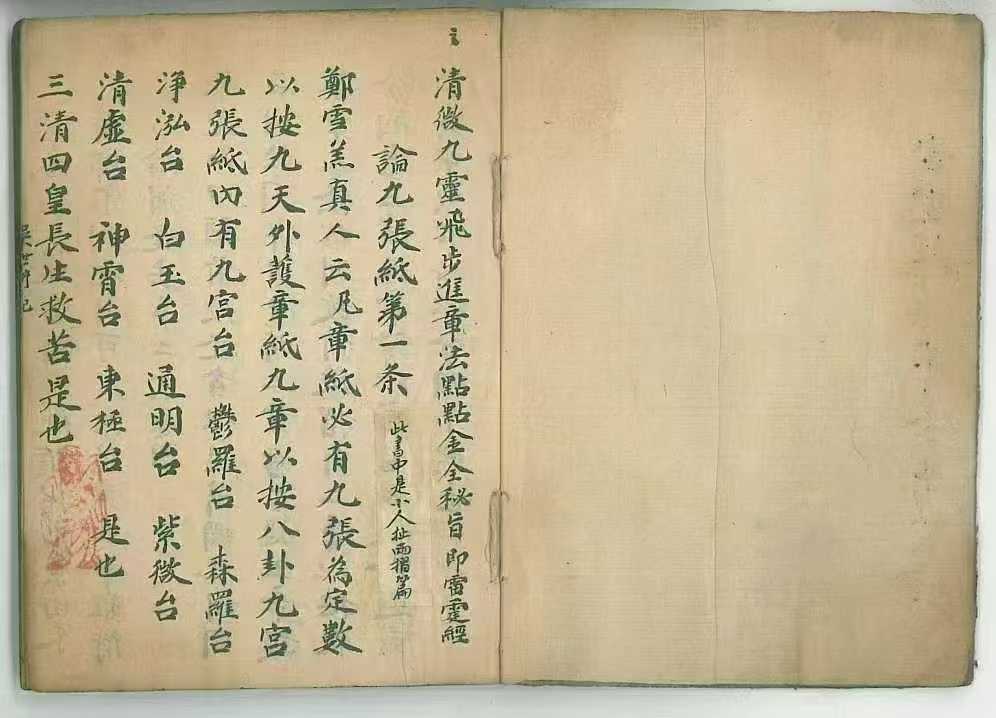 清微九靈飛步進章法點點金全秘旨即雷霆經
論九張紙第一条
此書中是小人扯両摺篇
鄭雪羔真人云凡章紙必有九張為定數
以按九天外護章紙九章以按八卦九宮
九張紙內有九宮台 鬱羅台 森羅台
淨泓台 白玉台 通明台 紫微台
清虛台 神霄台 東極台 是也
三清四皇長生救苦是也